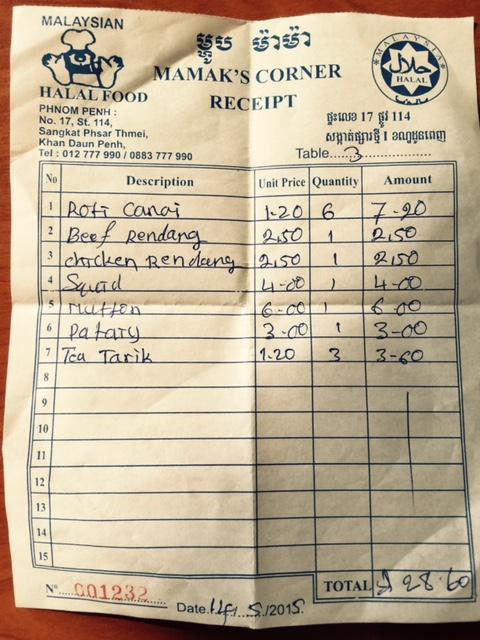 MALAYSIAN
HALAL FOOD
ម្ហូប ម៉ាម៉ា
MAMAK'S CORNER
RECEIPT
MALAYSIA
حلال
HALAL
PHNOM PENH :
No. 17, St. 114,
Sangkat Phsar Thmei,
Khan Daun Penh,
Tel : 012 777 990 / 0883 777 990
ផ្ទះលេខ 17 ផ្លូវ 114
សង្កាត់ផ្សារថ្មី I ខណ្ឌដូនពេញ
Table....3....................
No Description Unit Price Quantity Amount
1 Roti Canai 1-20 6 7-20
2 Beef Rendang 2,50 1 2,50
3 chicken Rendang 2,50 1 2,50
4 Squid 4-00 1 4-00
5 Mutton 6-00 1 6-00
6 Patary 3-00 1 3-00
7 Tea Tarik 1-20 3 3-60
8
9
10
11
12
13
14
15
TOTAL $ 28-60
Nº 001232
Date.14/.5./2015.